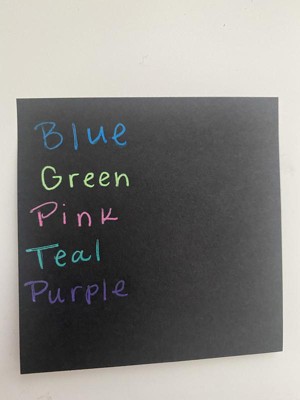 Blue
Green
Pink
Teal
Purple